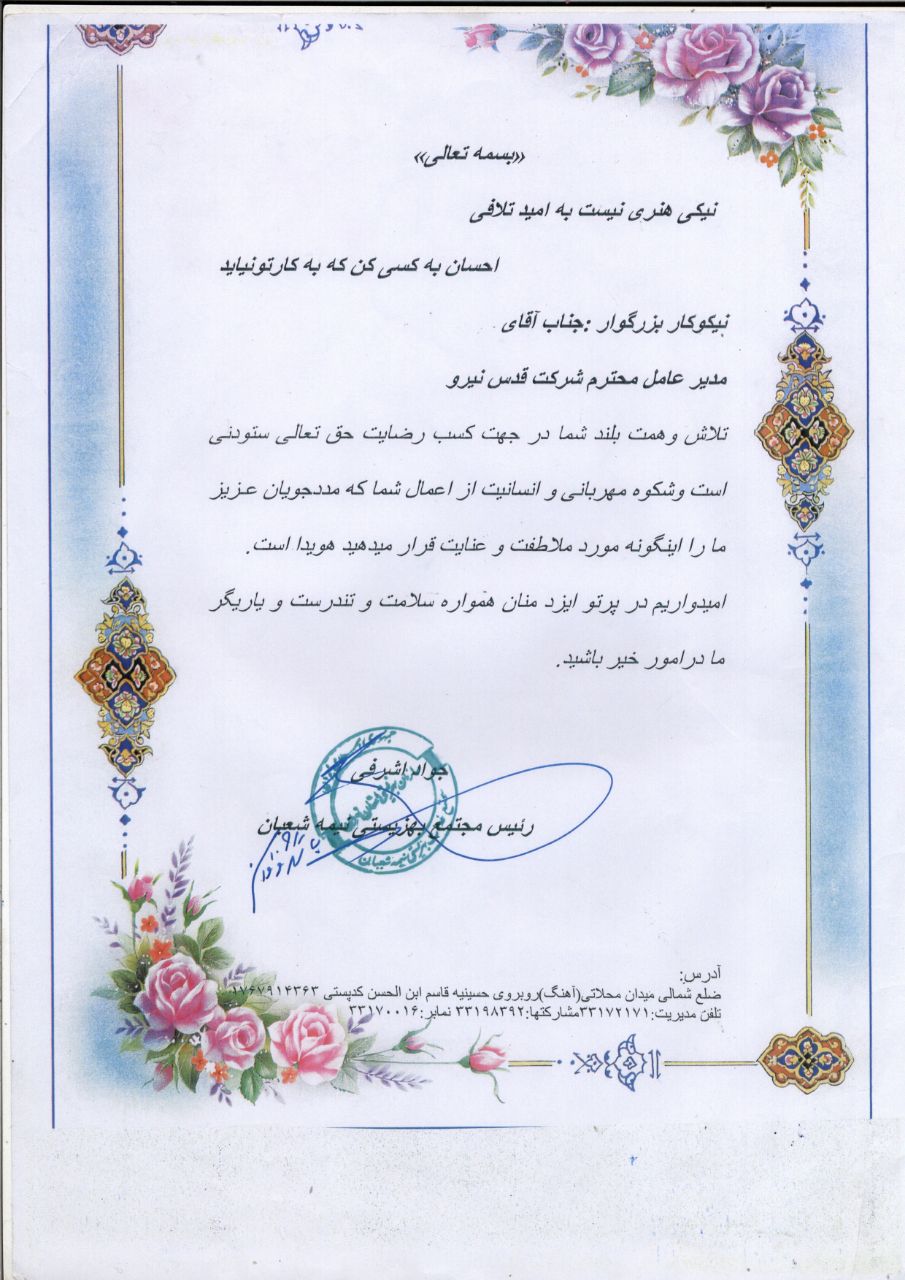 «بسمه تعالی»
نیکی هنری نیست به امید تلافی
احسان به کسی کن که به کارتونیاید
نیکوکار بزرگوار :جناب آقای
مدیر عامل محترم شرکت قدس نیرو
تلاش وهمت بلند شما در جهت کسب رضایت حق تعالی ستودنی
است وشکوه مهربانی و انسانیت از اعمال شما که مددجویان عزیز
ما را اینگونه مورد ملاطفت و عنایت قرار میدهید هویدا است.
امیدواریم در پرتو ایزد منان همواره سلامت و تندرست و یاریگر
ما درامور خیر باشید.
جواد اشرفی
رئیس مجتمع بهزیستی نیمه شعبان
آدرس:
ضلع شمالی میدان محلاتی(آهنگ)روبروی حسینیه قاسم ابن الحسن کدپستی ۱۷۶۷۹۱۴۳۶۳
تلفن مدیریت:۳۳۱۷۲۱۷۱مشارکتها:۳۳۱۹۸۳۹۲ نمابر:۳۳۱۷۰۰۱۶